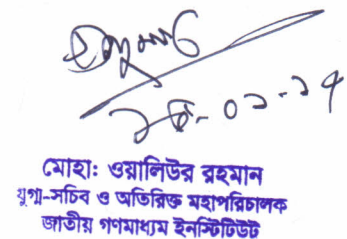 মোহা: ওয়ালিউর রহমান
যুগ্ম-সচিব ও অতিরিক্ত মহাপরিচালক
জাতীয় গণমাধ্যম ইনস্টিটিউট